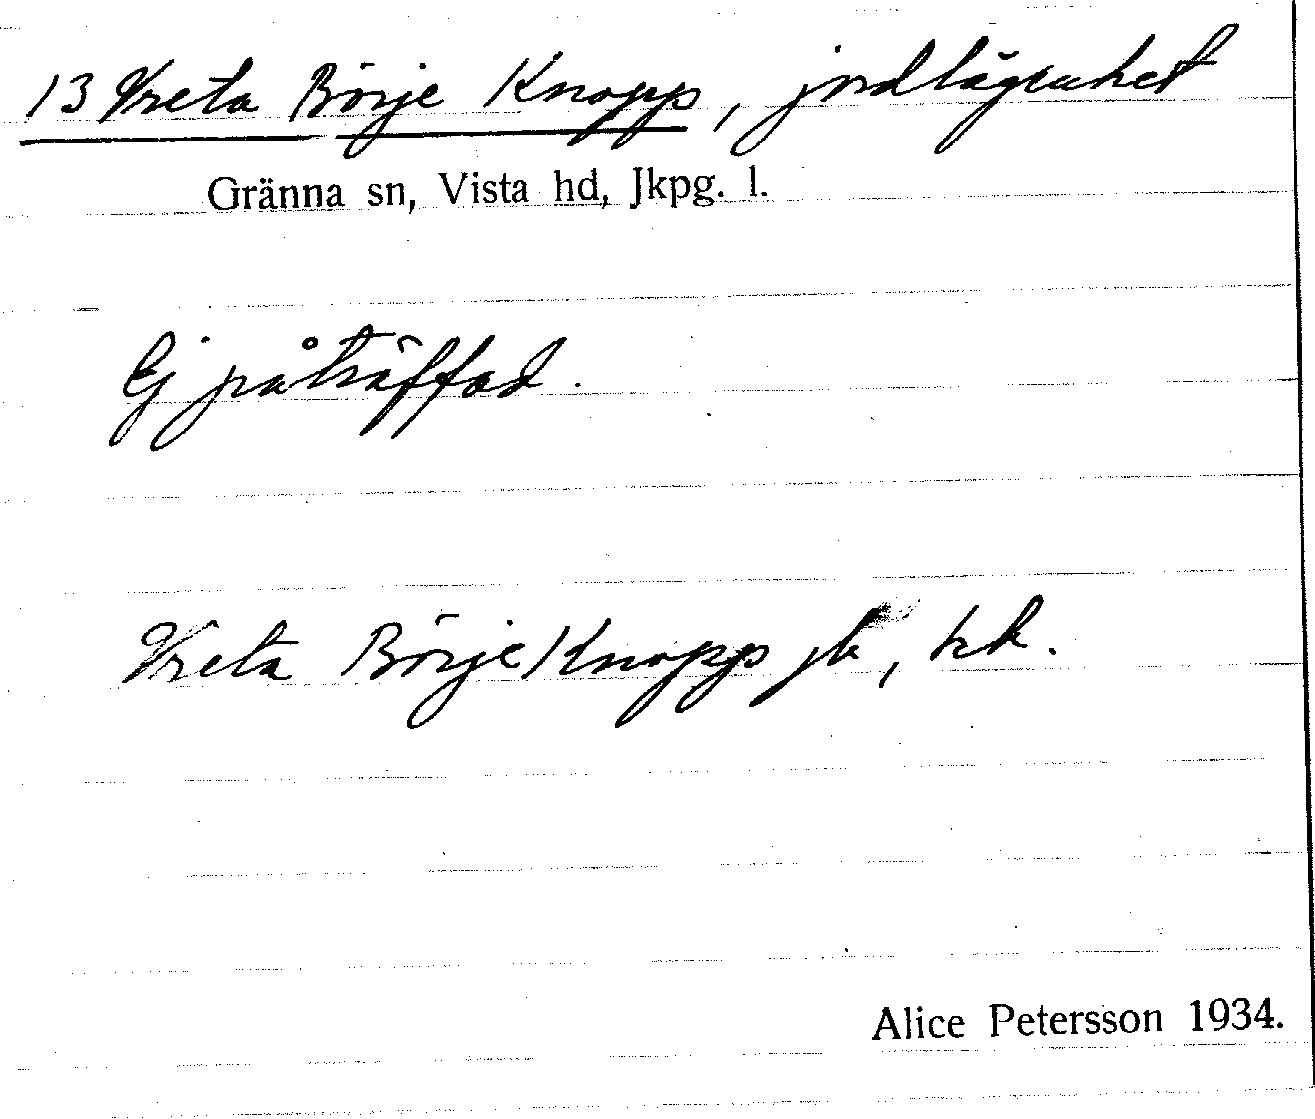 13 Vreta Börje Knopp, jordlägenhet
Gränna sn, Vista hd, Jkpg. l.
Ej påträffad.
Vreta Börje Knopp jb, hk.
Alice Petersson 1934.